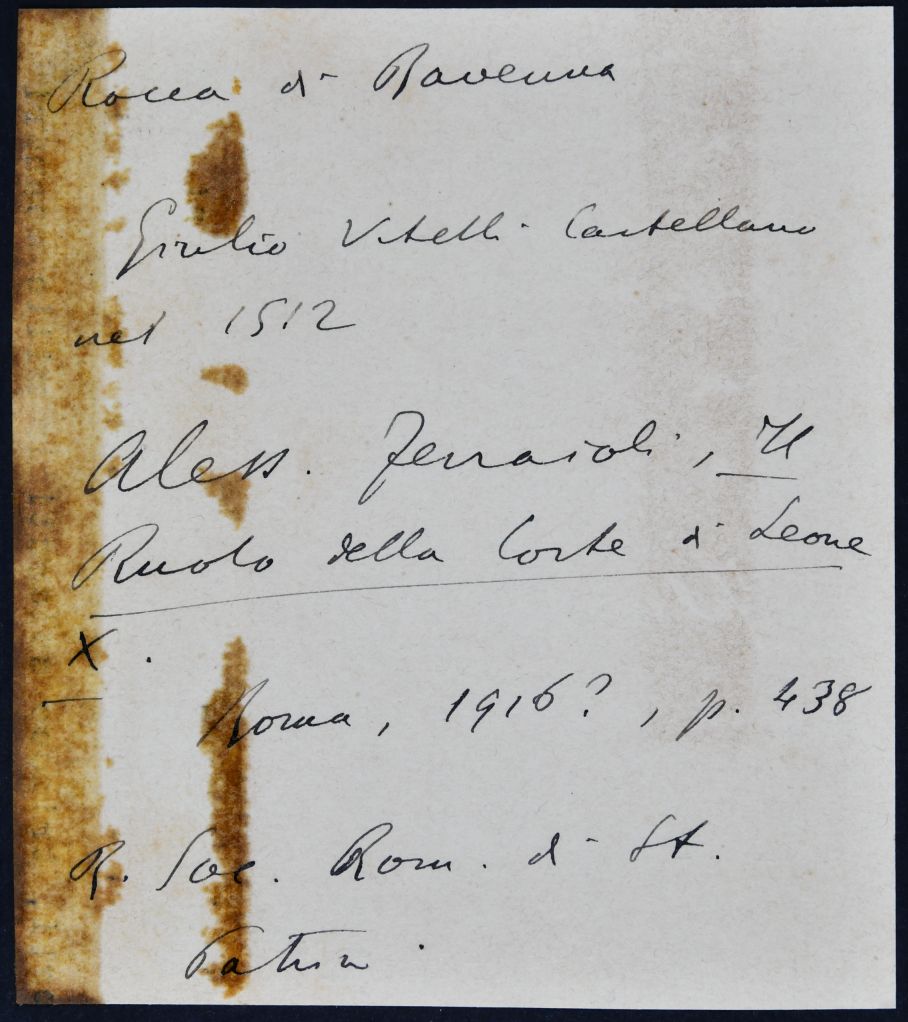 Rocca di Ravenna
Giulio Vitelli Castellano
nel 1512
Aless. Ferraioli, Il
Ruolo della Corte di Leone
X.
Roma, 1916?, p. 438
R. Soc. Rom. di St.
Patria.